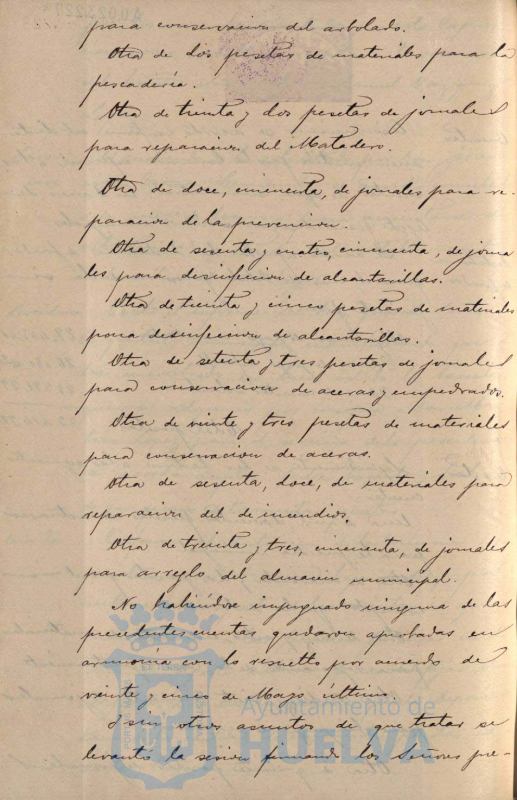 para conservacion del arbolado.
Otra de dos pesetas de materiales para la
pescadería.
Otra de treinta y dos pesetas de jornales
para reparacion del Matadero.
Otra de doce, cincuenta, de jornales para re-
paracion de la prevencion.
Otra de sesenta y cuatro, cincuenta, de jorna
les para desinfeccion de alcantarillas.
Otra de treinta y cinco pesetas de materiales
para desinfeccion de alcantarillas.
Otra de setenta y tres pesetas de jornales
para conservacion de aceras y empedrados.
Otra de veinte y tres pesetas de materiales
para conservacion de aceras.
Otra de sesenta, doce, de materiales para
reparacion del de incendios.
Otra de treinta y tres, cincuenta, de jornales
para arreglo del almacen municipal.
No habiéndose impugnado ninguna de las
precedentes cuentas quedaron aprobadas en
armonía con lo resuelto por acuerdo de
veinte y cinco de Mayo último.
Y sin otros asuntos de que tratar se
levantó la sesion firmando los Señores pre-
Ayuntamiento de
HUELVA